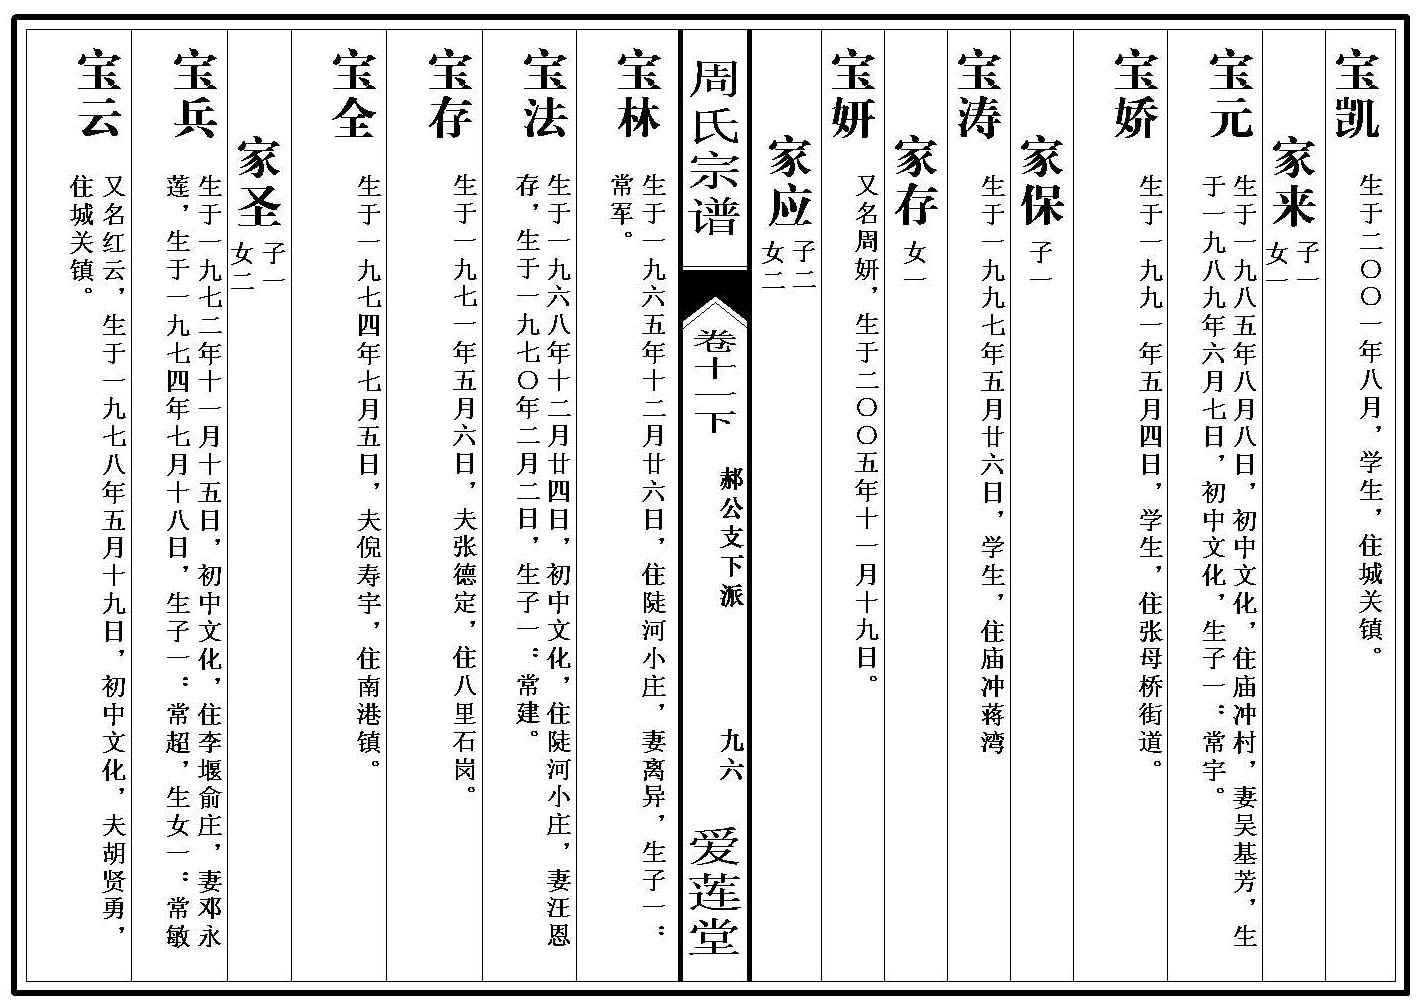 宝凯
生于二〇〇一年八月，学生，住城关镇。
家来
子一
女一
宝元
生于一九八五年八月八日，初中文化，住庙冲村，妻吴基芳，生
于一九八九年六月七日，初中文化，生子一：常宇。
宝娇
生于一九九一年五月四日，学生，住张母桥街道。
家保
子一
宝涛
生于一九九七年五月廿六日，学生，住庙冲蒋湾
家存
女一
宝妍
又名周妍，生于二〇〇五年十一月十九日。
家应
子二
女二
周氏宗谱
卷十二下
郝公支下派
九六
爱莲堂
宝林
生于一九六五年十二月廿六日，住陡河小庄，妻离异，生子一：
常军。
宝法
生于一九六八年十二月廿四日，初中文化，住陡河小庄，妻汪恩
存，生于一九七〇年二月二日，生子一：常建。
宝存
生于一九七一年五月六日，夫张德定，住八里石岗。
宝全
生于一九七四年七月五日，夫倪寿宇，住南港镇。
家圣
子一
女二
宝兵
生于一九七二年十一月十五日，初中文化，住李堰俞庄，妻邓永
莲，生于一九七四年七月十八日，生子一：常超，生女一：常敏
宝云
又名红云，生于一九七八年五月十九日，初中文化，夫胡贤勇，
住城关镇。